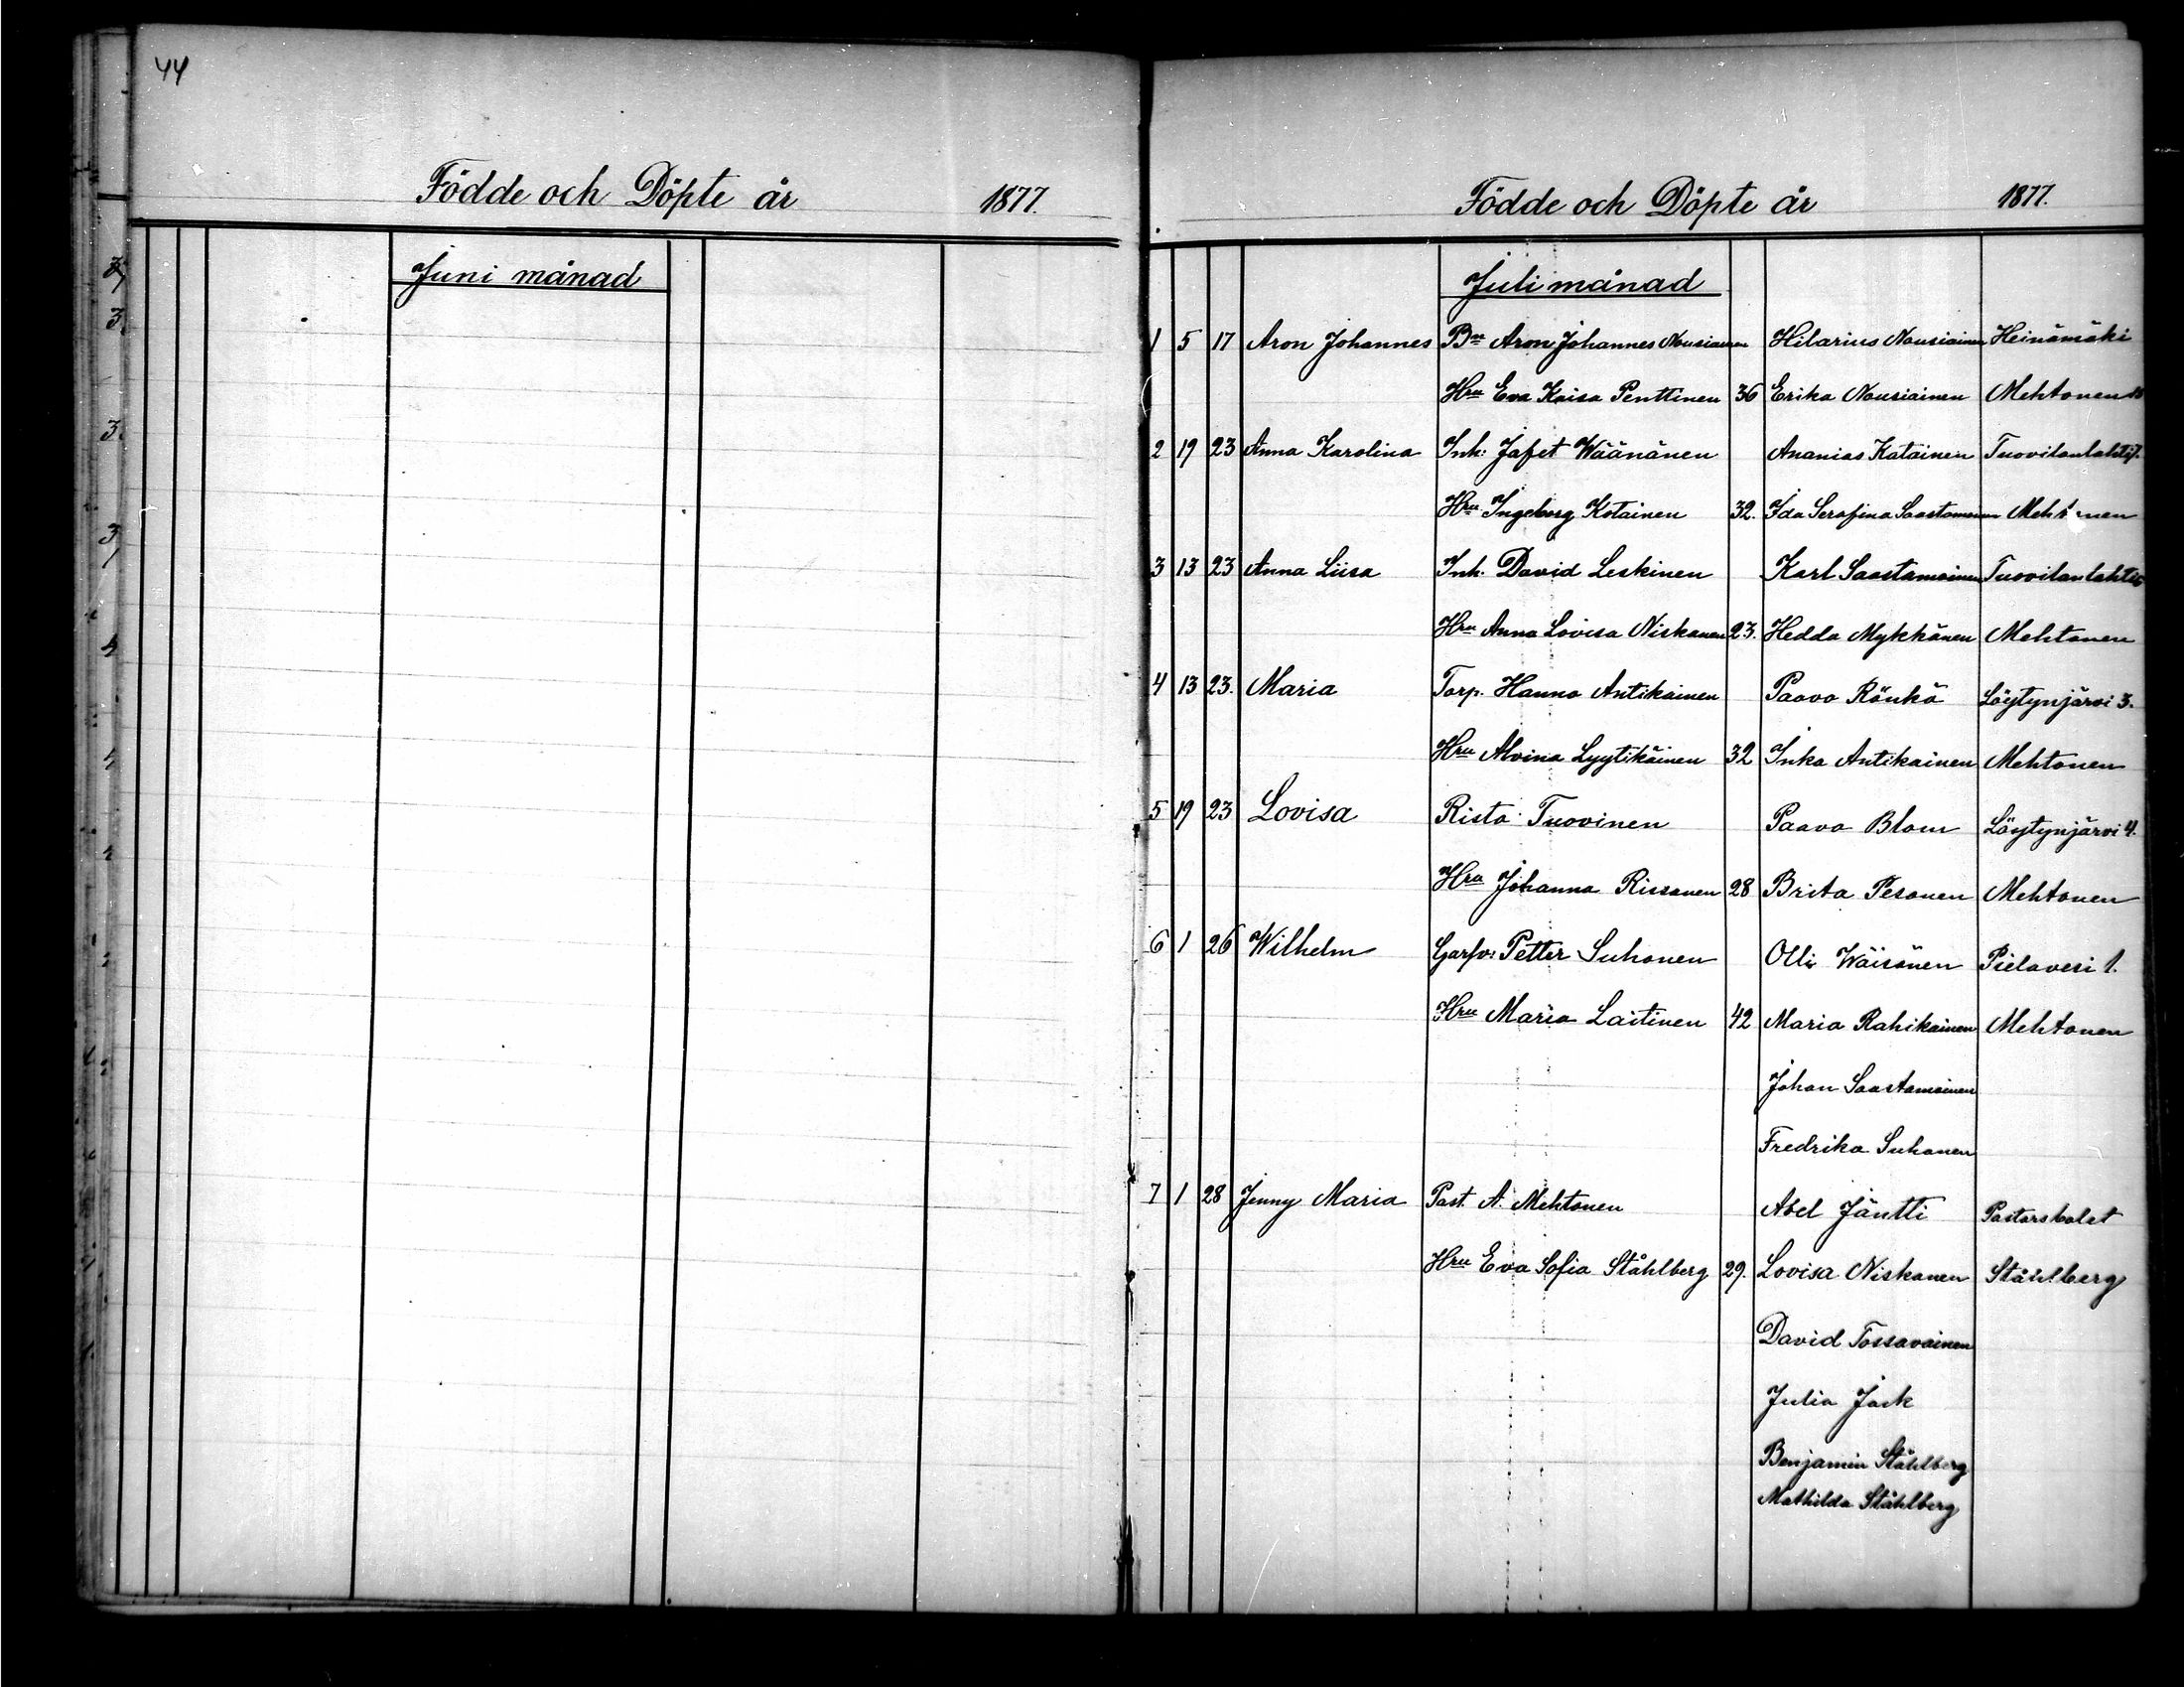 44
Födde och Döpte år 1877.
Juni månad
Födde och Döpte år 1877.
Juli månad
1 5 17 Aron Johannes Bn Aron Johannes Nousiainen Hilarius Nousiainen Heinämäki
Hru Eva Kaisa Penttinen 36 Erika Nousiainen Mehtonen
2 19 23 Anna Karolina Inh: Jafet Wäänänen Ananias Katainen Tuovilanlahti 7.
Hru Ingeborg Kotainen 32. Ida Serafina Saastamoinen Mehtonen
3 13 23 Anna Liisa Inh. David Leskinen Karl Saastamoinen Tuovilanlahti
Hru Anna Lovisa Niskanen 23. Hedda Mykkänen Mehtonen
4 13 23. Maria Torp. Hanno Antikainen Paavo Rönkö Löytynjärvi 3.
Hru Alvina Lyytikäinen 32 Inka Antikainen Mehtonen
5 19 23 Lovisa Risto Tuovinen Paavo Blom Löytynjärvi 4.
Hru Johanna Rissanen 28 Brita Pesonen Mehtonen
6 1 26 Wilhelm Garfv: Petter Suhonen Olli Wäisänen Pielavesi 1.
Hru Maria Laitinen 42 Maria Rahikainen Mehtonen
Johan Saastamoinen
Fredrika Suhonen
7 1 28 Jenny Maria Past. A. Mehtonen Abel Jäntti Pastorsbolet
Hru Eva Sofia Ståhlberg 29. Lovisa Niskanen Ståhlberg
David Tossavainen
Julia Jack
Benjamin Ståhlberg
Mathilda Ståhlberg